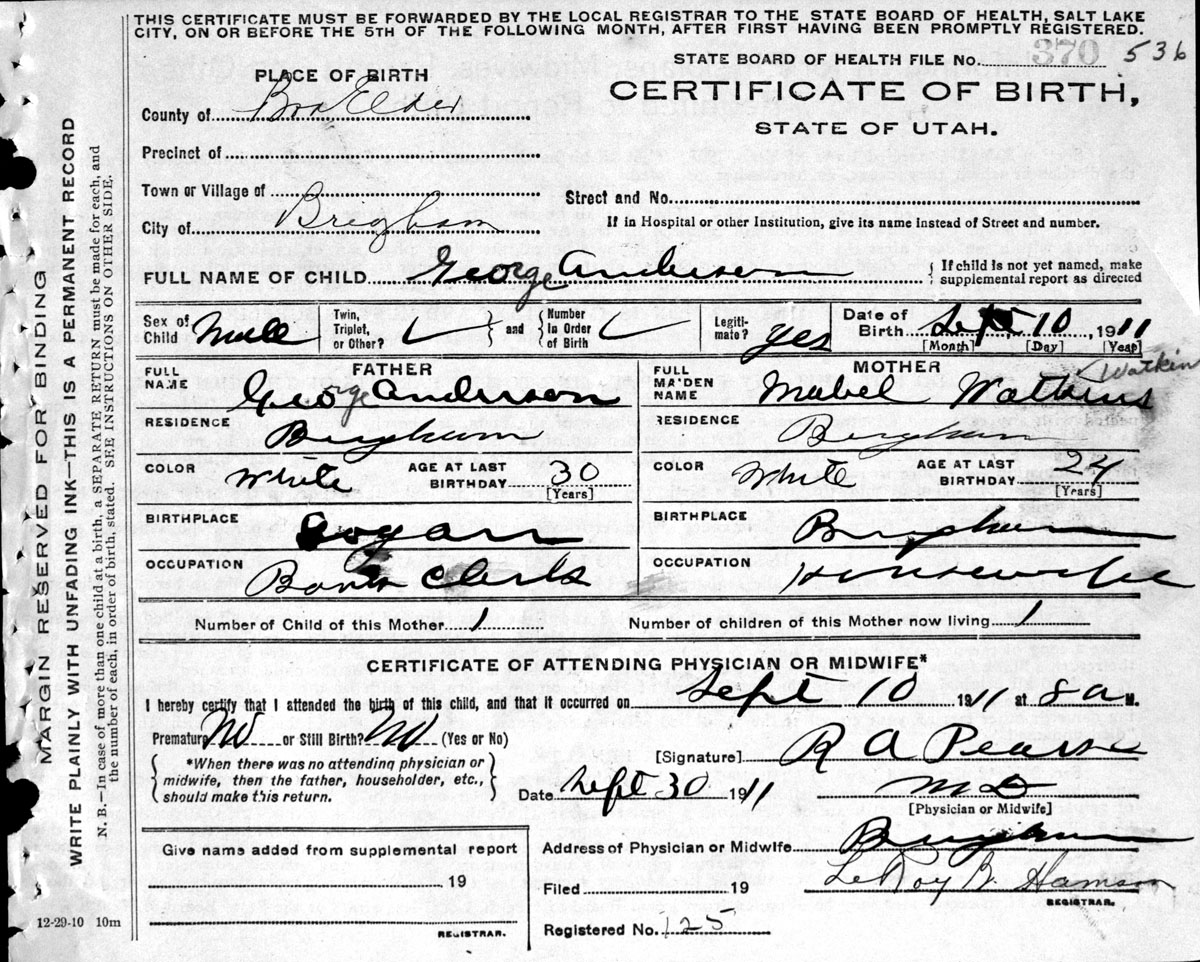 THIS CERTIFICATE MUST BE FORWARDED BY THE LOCAL REGISTRAR TO THE STATE BOARD OF HEALTH, SALT LAKE
CITY, ON OR BEFORE THE 5TH OF THE FOLLOWING MONTH, AFTER FIRST HAVING BEEN PROMPTLY REGISTERED.
STATE BOARD OF HEALTH FILE No. 370 536
PLACE OF BIRTH
CERTIFICATE OF BIRTH,
STATE OF UTAH.
County of Box Elder
Precinct of
Town or Village of
Street and No.
City of Brigham
If in Hospital or other Institution, give its name instead of Street and number.
FULL NAME OF CHILD George Anderson
{ If child is not yet named, make
supplemental report as directed
Sex of Child Male
Twin, Triplet, or Other?
{ and }
Number In Order of Birth
Legitimate? yes
Date of Birth Sept 10, 1911
[Month] [Day] [Year]
FATHER
FULL NAME George Anderson
RESIDENCE Brigham
COLOR White AGE AT LAST BIRTHDAY 30
[Years]
BIRTHPLACE Logan
OCCUPATION Bank Clerk
MOTHER
Watkin
FULL MAIDEN NAME Mabel Watkins
RESIDENCE Brigham
COLOR White AGE AT LAST BIRTHDAY 24
[Years]
BIRTHPLACE Brigham
OCCUPATION Housewife
Number of Child of this Mother 1 Number of children of this Mother now living 1
CERTIFICATE OF ATTENDING PHYSICIAN OR MIDWIFE*
I hereby certify that I attended the birth of this child, and that it occurred on Sept 10 1911 at 8 a M.
Premature No or Still Birth? No (Yes or No)
[Signature] R A Pearse
{ *When there was no attending physician or
midwife, then the father, householder, etc.,
should make this return. }
Date Sept 30 1911 M D
[Physician or Midwife]
Give name added from supplemental report
19
REGISTRAR.
Address of Physician or Midwife Brigham
Filed 19 LeRoy B.
REGISTRAR.
Registered No. 125
12-29-10 10m
MARGIN RESERVED FOR BINDING
WRITE PLAINLY WITH UNFADING INK—THIS IS A PERMANENT RECORD
N. B.—In case of more than one child at a birth, a SEPARATE RETURN must be made for each, and
the number of each, in order of birth, stated. SEE INSTRUCTIONS ON OTHER SIDE.